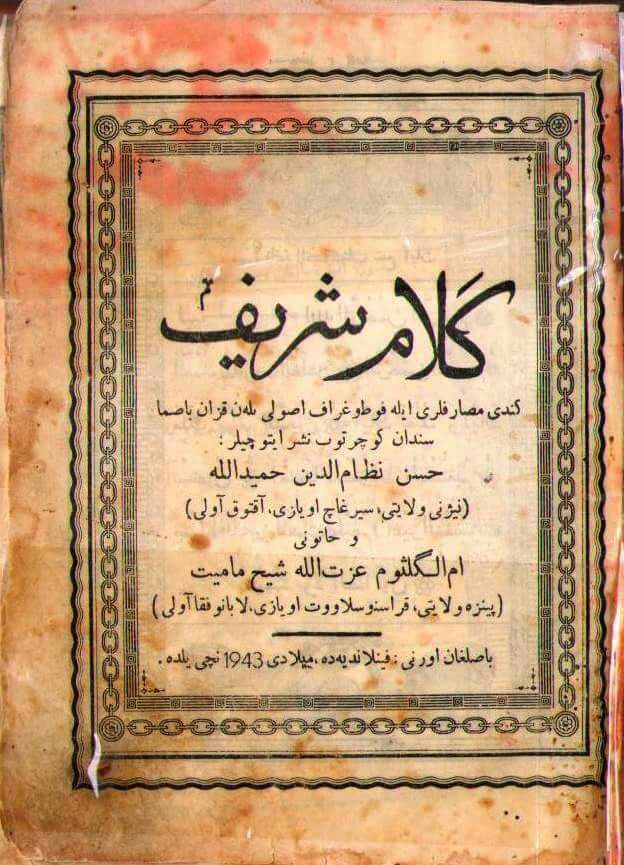 كلام شريف
كندى مصارفلرى ايله فوطوغراف اصولى بله‌ن قزان باصما
سندان كوچرتوب نشر ايتوچيلر:
حسن نظام‌الدين حميدالله
(نيژنى ولايتى، سيرغاچ اويازى، آقتوق آولى)
و حاتونى
ام‌الگلثوم عزت‌الله شيح ماميت
(پينزه ولايتى، قراسنوسلاووت اويازى، لابانوفقا آولى)
باصلغان اورنى: فينلانديه‌ده، ميلادى 1943 نچى يلده.